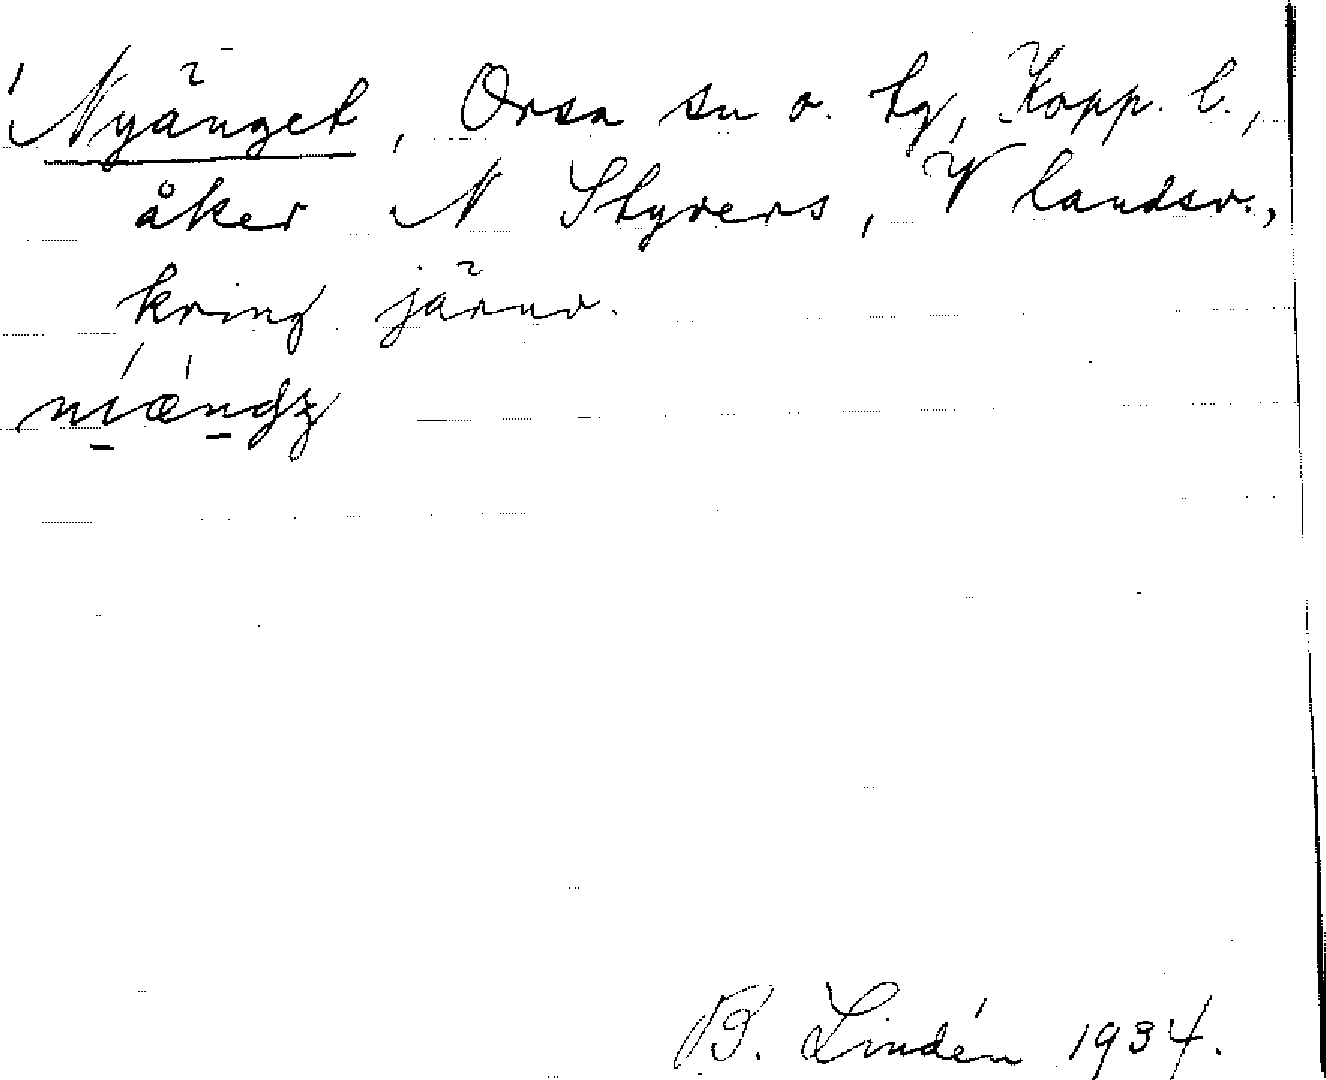 Nyänget, Orsa sn o. tg, Kopp. l.,
åker N Styvers, V landsv.,
kring järnv.
nıændʒ
B. Lindén 1934.